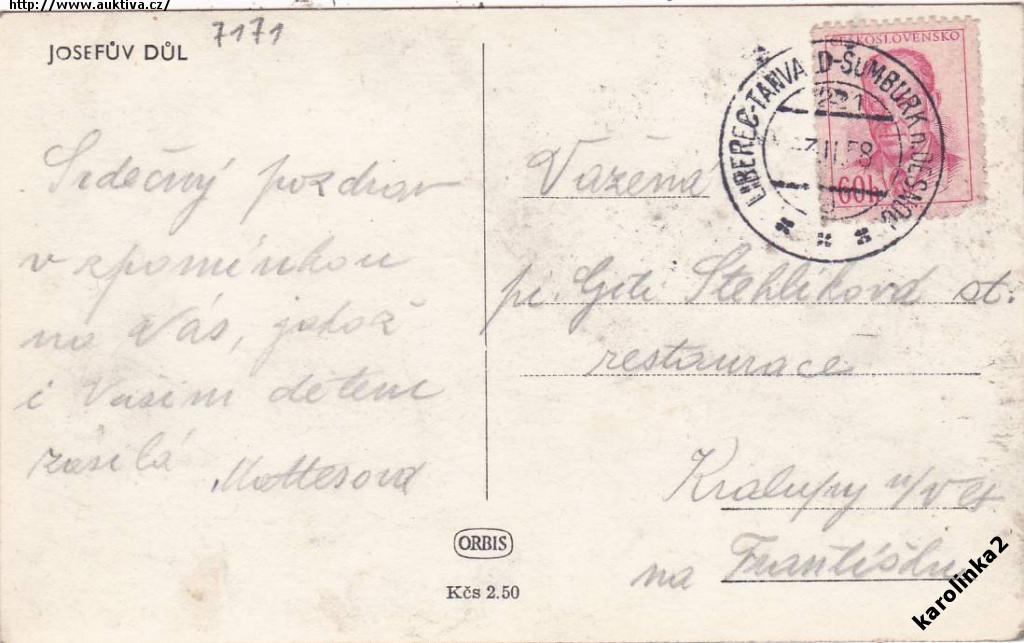 http://www.auktiva.cz/
7171
JOSEFŮV DŮL
Srdečný pozdrav
v zpomínkou
na Vás, jakož
i Vašim dětem
zasílá
ČESKOSLOVENSKO
60h
LIBEREC-TANVALD-ŠUMBURK n. DESNOU
Vážená
pí. Stehlíková st.
restaurace
Kralupy n/Vlt
na Františku
ORBIS
Kčs 2.50
karolinka2